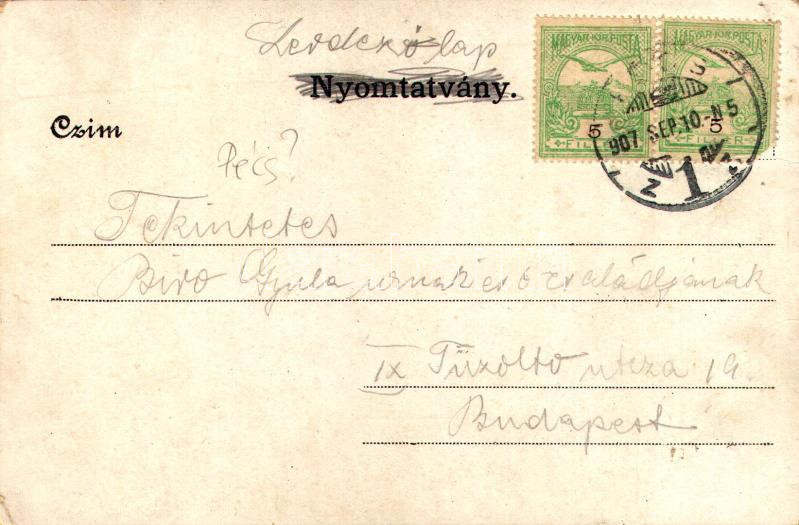 Levelező lap
Nyomtatvány.
MAGYAR·KIR·POSTA MAGYAR·KIR·POSTA
5 5
FILLÉR FILLÉR
907 SEP.10 N5
1
Czim
Pécs?
Tekintetes
Biro Gyula urnak és családjának
IX Tűzolto utcza 19.
Budapest